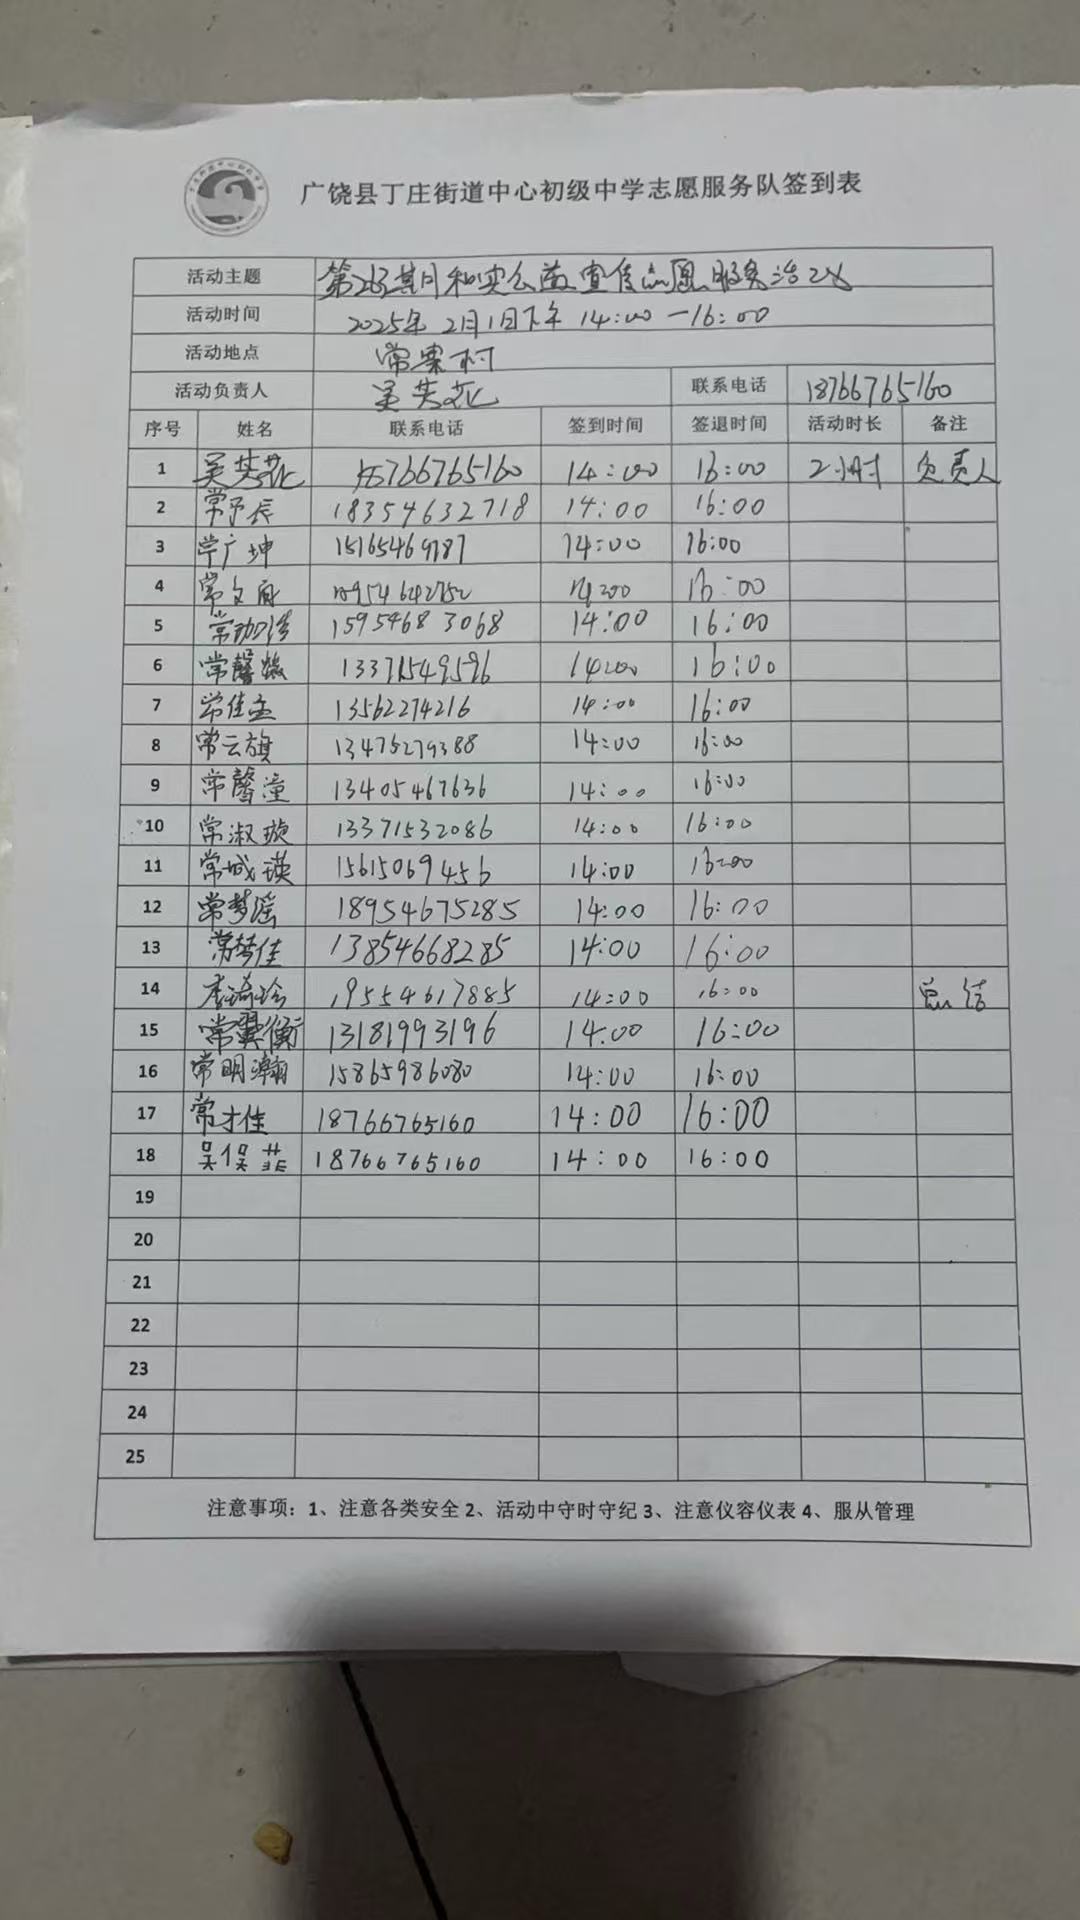 广饶县丁庄街道中心初级中学志愿服务队签到表
活动主题 第263期月和实公益宣传志愿服务活动
活动时间 2025年2月1日下午 14:00—16:00
活动地点 常寨村
活动负责人 吴芙花 联系电话 18766765160
序号 姓名 联系电话 签到时间 签退时间 活动时长 备注
1 吴芙花 18766765160 14:00 16:00 2小时 负责人
2 常予辰 18354632718 14:00 16:00
3 常广坤 15165469787 14:00 16:00
4 14:00 16:00
5 15954683068 14:00 16:00
6 常馨 13371549596 14:00 16:00
7 常佳孟 13562274216 14:00 16:00
8 常云旗 13475279388 14:00 16:00
9 常馨潼 13405467636 14:00 16:00
10 常淑璇 13371532086 14:00 16:00
11 常城瑛 15615069456 14:00 16:00
12 常梦瑶 18954675285 14:00 16:00
13 常梦佳 13854668285 14:00 16:00
14 李 19554617885 14:00 16:00 总结
15 常翼衡 13181993196 14:00 16:00
16 常明瀚 15865986080 14:00 16:00
17 常才佳 18766765160 14:00 16:00
18 吴俣菲 18766765160 14:00 16:00
19
20
21
22
23
24
25
注意事项：1、注意各类安全 2、活动中守时守纪 3、注意仪容仪表 4、服从管理